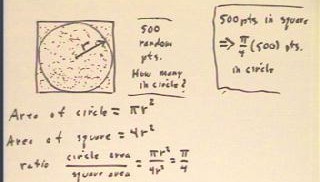 r
500
random
pts.
How many
in circle?
500 pts in square
⇒ π/4 (500) pts.
in circle
Area of circle = πr²
Area of square = 4r²
ratio circle area / square area = πr²/4r² = π/4